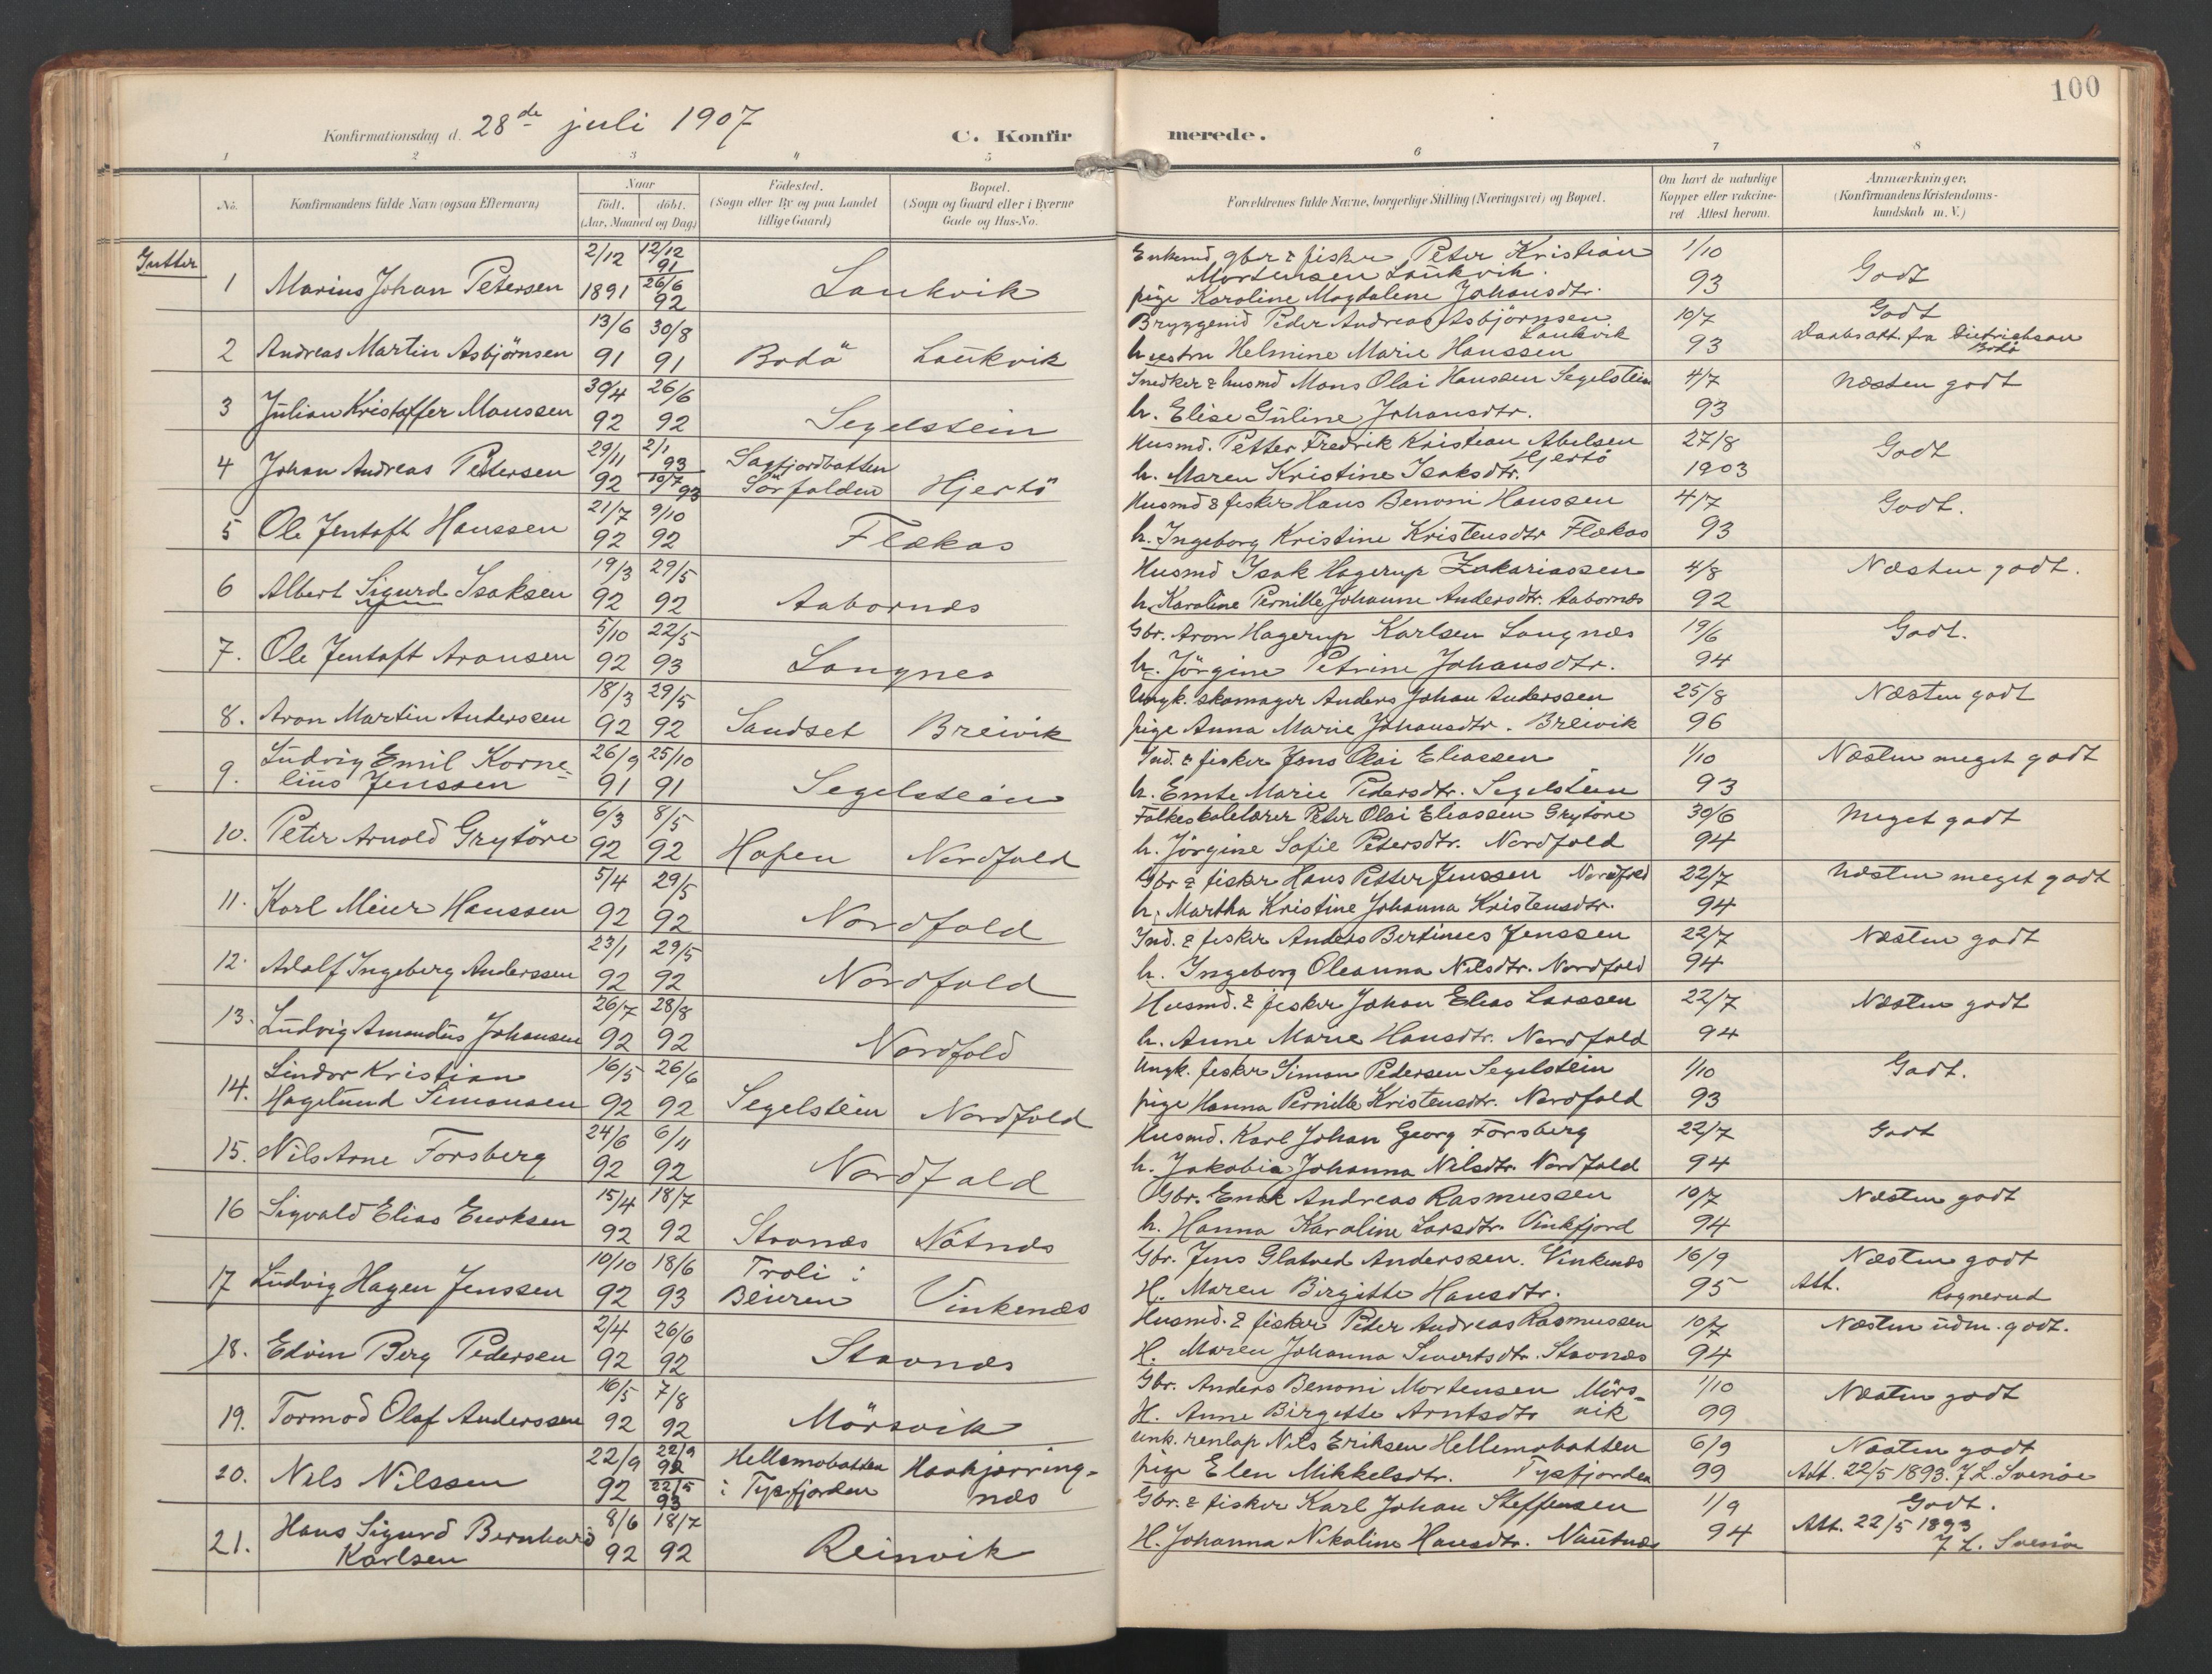 100
Konfirmationsdag d. 28de juli 1907
C. Konfirmerede.
1 2 3 4 5 6 7 8
No.
Konfirmandens fulde Navn (ogsaa Efternavn)
Naar
født. døbt.
(Aar, Maaned og Dag)
Fødested.
(Sogn eller By og paa Landet
tillige Gaard)
Bopæl.
(Sogn og Gaard eller i Byerne
Gade og Hus-No.
Forældrenes fulde Navne, borgerlige Stilling (Næringsvei) og Bopæl.
Om havt de naturlige
Kopper eller vakcine-
ret Attest herom.
Anmærkninger.
(Konfirmandens Kristendoms-
kundskab m. V.)
Gutter
1 Marius Johan Petersen 2/12 1891 12/12 91 26/6 92 Laukvik
Enkemd gbr & fisker Peter Kristian
Mortensen Laukvik.
pige Karoline Magdalene Johansdtr. 1/10 93 Godt
2 Andreas Martin Asbjørnsen 13/6 91 30/8 91 Bodø Laukvik
Bryggemd Peder Andreas Asbjørnsen
Laukvik
hustru Helmine Marie Hanssen 10/7 93 Godt
Daabsatt. fra Dietrichson
Bodø
3 Julian Kristoffer Monssen 30/4 92 26/6 92 Segelstein
Snedker & husmd Mons Olai Hanssen Segelstein
h. Elise Guline Johansdtr. 4/7 93 Næsten godt
4 Johan Andreas Pettersen 29/11 92 2/1 93 10/7 93 Sagfjordbotten
Sørfolden Hjertø
Husmd. Petter Fredrik Kristian Abelsen
Hjertø
h. Maren Kristine Isaksdtr. 27/8 1903 Godt
5 Ole Jentoft Hanssen 21/7 92 9/10 92 Flækas
Husmd & fisker Hans Benoni Hanssen
h. Ingeborg Kristine Kristensdtr Flækas 4/7 93 Godt.
6 Albert Sigurd Isaksen 19/3 92 29/5 92 Aabornæs
Husmd Isak Hagerup Zakariassen
h. Karoline Pernille Johanne Andersdtr. Aabornæs 4/8 92 Næsten godt.
7. Ole Jentoft Aronsen 5/10 92 22/5 93 Langnes
Gbr. Aron Hagerup Karlsen Langnæs
h. Jørgine Petrine Johansdtr. 19/6 94 Godt.
8. Aron Martin Anderssen 18/3 92 29/5 92 Sandset Breivik
Ungk. skomager Anders Johan Anderssen
pige Anna Marie Johansdtr. Breivik 25/8 96 Næsten godt
9. Ludvig Emil Korne-
lius Jenssen 26/9 91 25/10 91 Segelstein
Ind. & fisker Jens Olai Eliassen
h. Emte Marie Pedersdtr. Segelstein 1/10 93 Næsten meget godt
10. Peter Arnold Grytøre 6/3 92 8/5 92 Hopen Nordfold
Folkeskolelærer Peter Olai Eliassen Grytøre
h. Jørgine Sofie Petersdtr. Nordfold 30/6 94 Meget godt
11. Karl Meier Hanssen 5/4 92 29/5 92 Nordfold
Gbr & fisker Hans Petter Jenssen Nordfold
h. Martha Kristine Johanna Kristensdtr. 22/7 94 Næsten meget godt
12. Adolf Ingeberg Anderssen 23/1 92 29/5 92 Nordfold
Ind. & fisker Anders Bertineus Jenssen
h. Ingeborg Oleanna Nilsdtr. Nordfold 22/7 94 Næsten godt
13. Ludvig Amandus Johansen 26/7 92 28/8 92 Nordfold
Husmd. & fisker Johan Elias Larssen
h. Anne Marie Hansdtr. Nordfold 22/7 94 Næsten godt
14. Lindor Kristian
Hagelund Simonsen 16/5 92 26/6 92 Segelstein Nordfold
Ungk. fisker Simon Pedersen Segelstein
pige Hanna Pernille Kristensdtr. Nordfold 1/10 93 Godt.
15. Nils Arne Forsberg 24/6 92 6/11 92 Nordfold
Husmd. Karl Johan Georg Forsberg
h. Jakobia Johanna Nilsdtr. Nordfold 22/7 94 Godt
16 Sigvald Elias Enoksen 15/4 92 18/7 92 Stavnæs Nøtnæs
Gbr. Enok Andreas Rasmussen
h. Hanna Karoline Larsdtr. Vinkfjord 10/7 94 Næsten godt
17 Ludvig Hagen Jenssen 10/10 92 18/6 93 Troli i
Beieren Vinkenæs
Gbr. Jens Glatved Anderssen. Vinkenæs
H. Maren Birgitte Hansdtr. 16/9 95 Næsten godt
Att. Rognerud
18. Edvin Berg Pedersen 2/4 92 26/6 92 Stavnæs
Husmd. & fisker Peter Andreas Rasmussen
H. Maren Johanna Sivertsdtr. Stavnæs 10/7 94 Næsten udm. godt.
19. Tormod Olaf Anderssen 16/5 92 7/8 92 Mørsvik
Gbr. Anders Benoni Mortensen Mørs-
H. Anne Birgitte Arntsdtr vik 1/10 99 Næsten godt
20. Nils Nilssen 22/9 92 22/9 92 22/5 93 Hellemobotten
i Tysfjorden Haakjærring-
næs
Unk. renlap Nils Eriksen Hellemobotten
pige Elen Mikkelsdtr. Tysfjorden 6/9 99 Næsten godt
Att. 22/5 1893. J. L. Svenøe
21. Hans Sigurd Bernhard
Karlsen 8/6 92 18/7 92 Reinvik
Gbr. & fisker Karl Johan Steffensen
H. Johanna Nikoline Hansdtr. Nautnæs 1/9 94 Godt.
Att. 22/5 1893
J. L. Svenøe